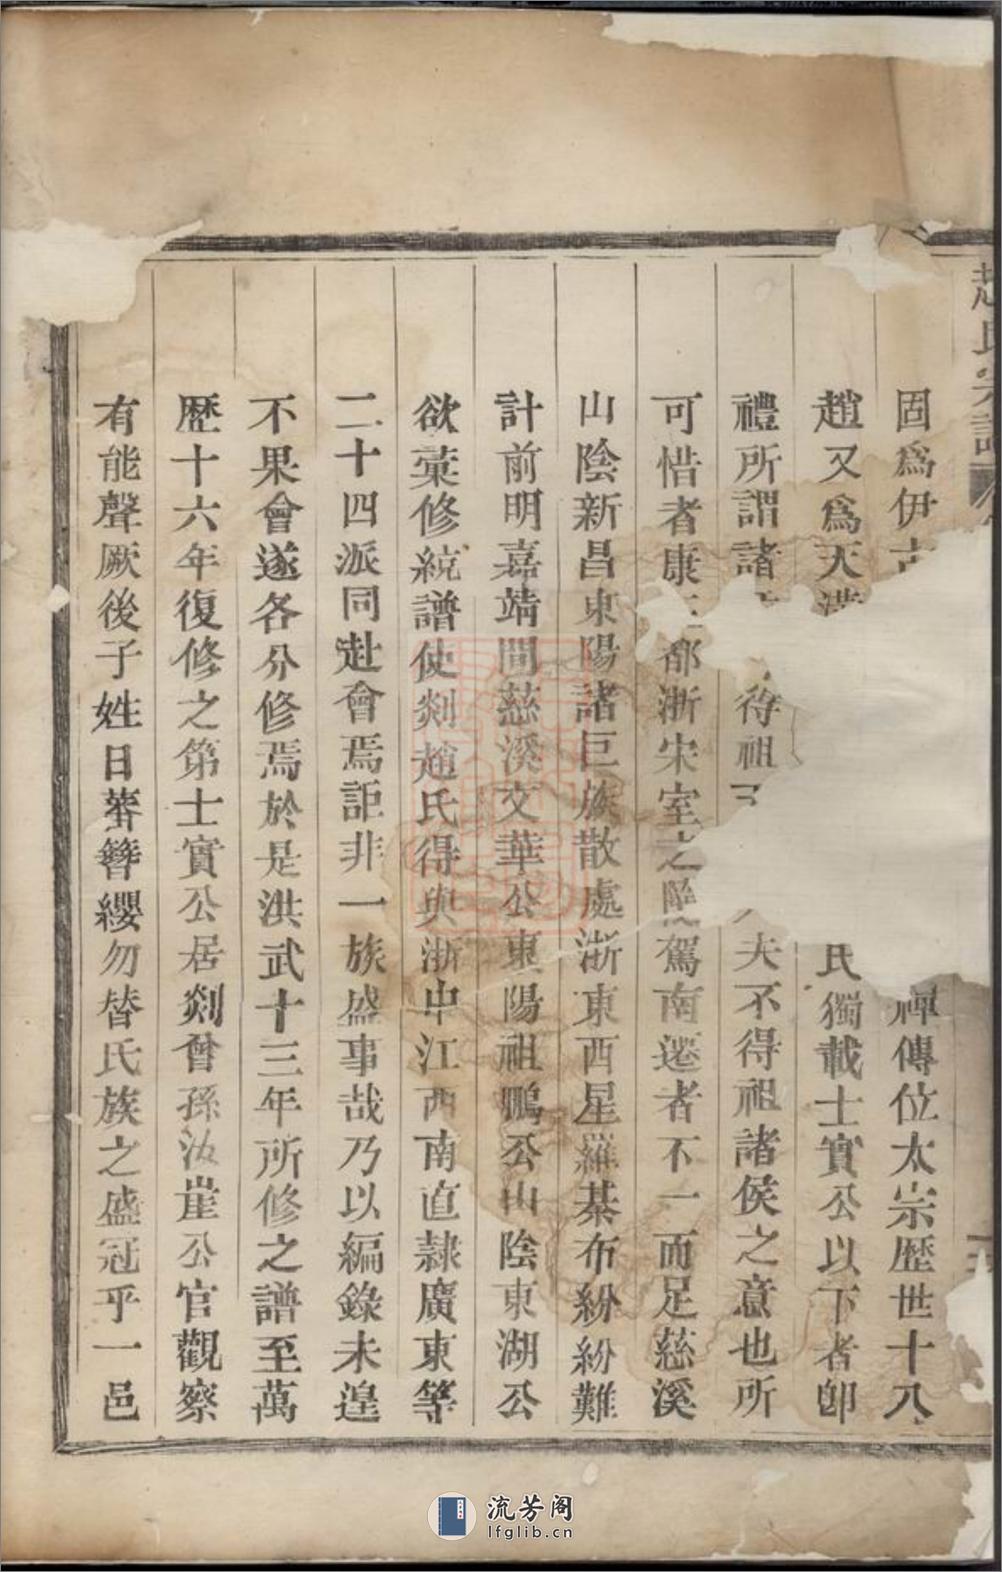 趙氏宗譜
固爲伊禪傳位太宗歷世十八
趙又爲天潢氏獨載士實公以下者卽
禮所謂諸得祖夫不得祖諸侯之意也所
可惜者康王都浙宋室之隨駕南遷者不一而足慈溪
山陰新昌東陽諸巨族散處浙東西星羅棊布紛紛難
計前明嘉靖間慈溪文華公東陽祖鵬公山陰東湖公
欲彙修統譜使剡趙氏得與浙中江西南直隸廣東等
二十四派同赴會焉詎非一族盛事哉乃以編錄未遑
不果會遂各分修焉於是洪武十三年所修之譜至萬
歷十六年復修之第士實公居剡曾孫汝崖公官觀察
有能聲厥後子姓日蕃簪纓勿替氏族之盛冠乎一邑
流芳阁
lfglib.cn